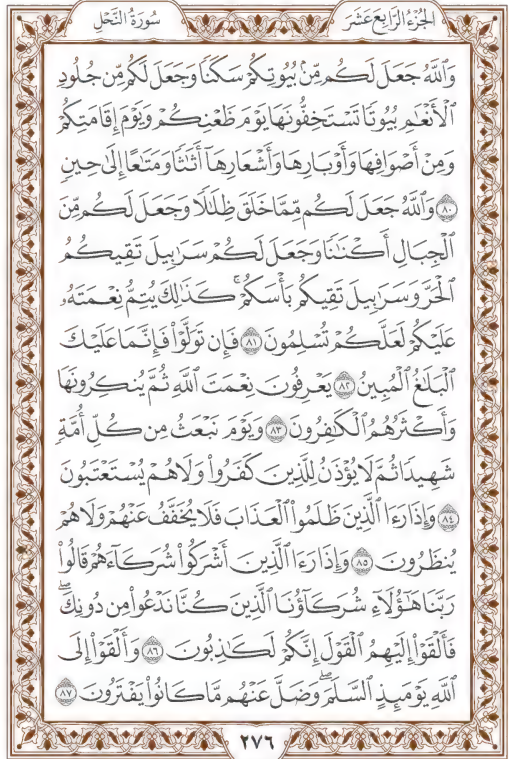 سُورَةُ النَّحْلِ
الجُزْءُ الرَّابِعَ عَشَرَ
وَٱللَّهُ جَعَلَ لَكُم مِّنۢ بُيُوتِكُمْ سَكَنًا وَجَعَلَ لَكُم مِّن جُلُودِ
ٱلْأَنْعَٰمِ بُيُوتًا تَسْتَخِفُّونَهَا يَوْمَ ظَعْنِكُمْ وَيَوْمَ إِقَامَتِكُمْ
وَمِنْ أَصْوَافِهَا وَأَوْبَارِهَا وَأَشْعَارِهَآ أَثَٰثًا وَمَتَٰعًا إِلَىٰ حِينٍ
٨٠ وَٱللَّهُ جَعَلَ لَكُم مِّمَّا خَلَقَ ظِلَٰلًا وَجَعَلَ لَكُم مِّنَ
ٱلْجِبَالِ أَكْنَٰنًا وَجَعَلَ لَكُمْ سَرَٰبِيلَ تَقِيكُمُ
ٱلْحَرَّ وَسَرَٰبِيلَ تَقِيكُم بَأْسَكُمْ ۚ كَذَٰلِكَ يُتِمُّ نِعْمَتَهُۥ
عَلَيْكُمْ لَعَلَّكُمْ تُسْلِمُونَ ٨١ فَإِن تَوَلَّوْا۟ فَإِنَّمَا عَلَيْكَ
ٱلْبَلَٰغُ ٱلْمُبِينُ ٨٢ يَعْرِفُونَ نِعْمَتَ ٱللَّهِ ثُمَّ يُنكِرُونَهَا
وَأَكْثَرُهُمُ ٱلْكَٰفِرُونَ ٨٣ وَيَوْمَ نَبْعَثُ مِن كُلِّ أُمَّةٍ
شَهِيدًا ثُمَّ لَا يُؤْذَنُ لِلَّذِينَ كَفَرُوا۟ وَلَا هُمْ يُسْتَعْتَبُونَ
٨٤ وَإِذَا رَءَا ٱلَّذِينَ ظَلَمُوا۟ ٱلْعَذَابَ فَلَا يُخَفَّفُ عَنْهُمْ وَلَا هُمْ
يُنظَرُونَ ٨٥ وَإِذَا رَءَا ٱلَّذِينَ أَشْرَكُوا۟ شُرَكَآءَهُمْ قَالُوا۟
رَبَّنَا هَٰٓؤُلَآءِ شُرَكَآؤُنَا ٱلَّذِينَ كُنَّا نَدْعُوا۟ مِن دُونِكَ ۖ
فَأَلْقَوْا۟ إِلَيْهِمُ ٱلْقَوْلَ إِنَّكُمْ لَكَٰذِبُونَ ٨٦ وَأَلْقَوْا۟ إِلَى
ٱللَّهِ يَوْمَئِذٍ ٱلسَّلَمَ ۖ وَضَلَّ عَنْهُم مَّا كَانُوا۟ يَفْتَرُونَ ٨٧
٢٧٦